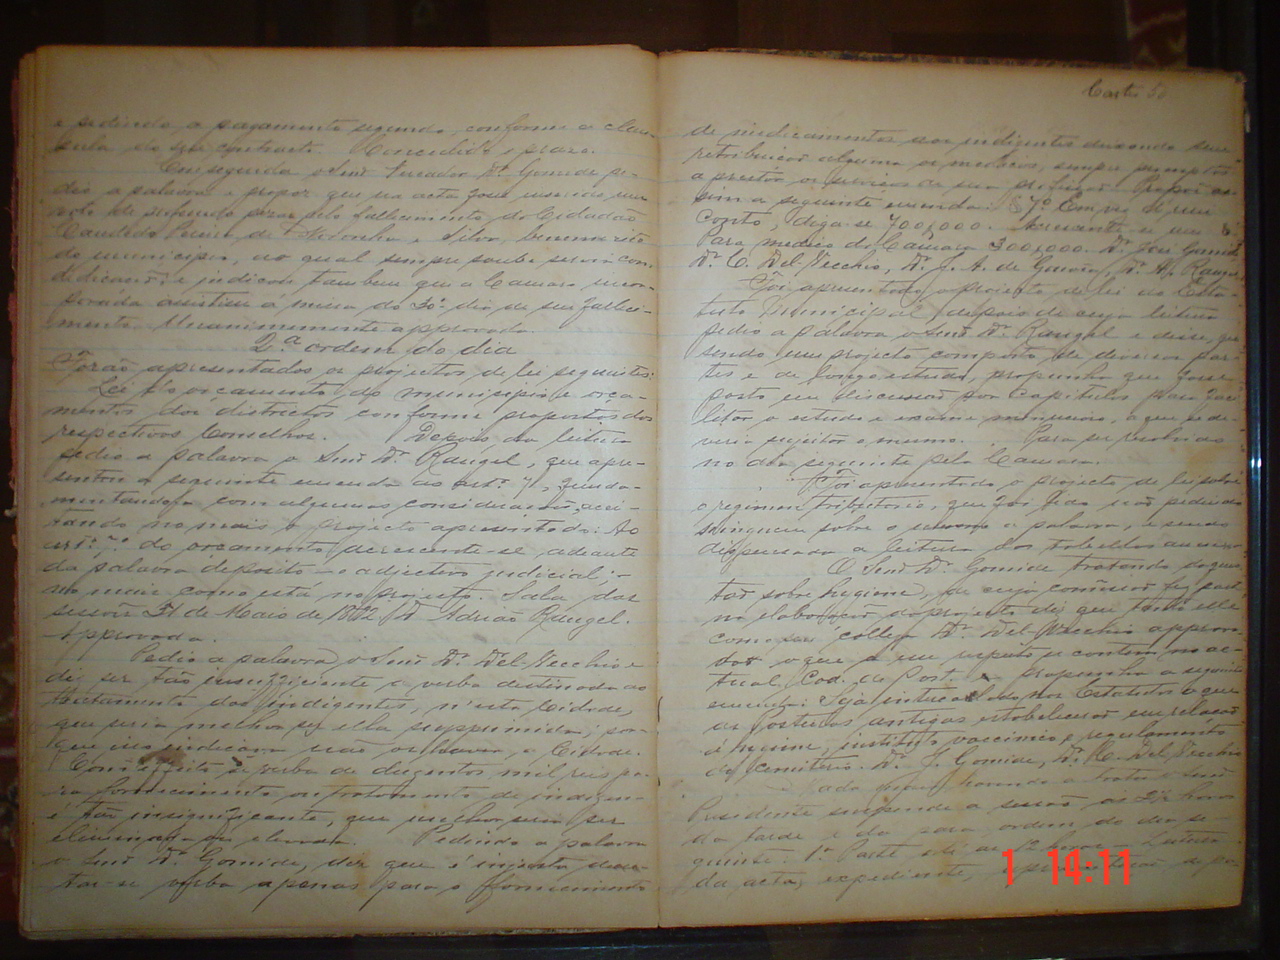 e pedindo o pagamento segundo, conforme a clau-
sula do seu contracto. Concedido o prazo.
Em seguida o Senr Vereador Dr. Gomide pe-
dio a palavra e propoz que na acta fosse inserido um
voto de profundo pezar pelo fallecimento do Cidadão
Candido Pereira de e Silva, benemerito
do municipio, ao qual sempre soube servir com
dedicacão; e indicou tambem que a Camara incor-
porada assistisse á missa do 30º dia de seu falleci-
mento. Unanimemente approvada.
2ª ordem do dia
Forão apresentados os projectos de lei seguintes:
Lei do orcamento do municipio e orca-
mentos dos districtos conforme propostos dos
respectivos Conselhos. Depois da leitura
pedio a palavra o Senr Dr. Rangel, que apre-
sentou a seguinte emenda ao art. 7º, funda-
mentando-a com algumas consideracões, acei-
tando no mais o projecto apresentado: Ao
art. 7º do orcamento accrescente-se, adiante
da palavra deposito – o adjectivo judicial; –
no mais como está no projecto. Sala das
sessões 31 de Maio de 1892 Dr. Adrião Rangel.
Approvada.
Pedio a palavra o Senr Dr. Del-Vecchio e
diz ser tão insufficiente a verba destinada ao
tratamento dos indigentes, n'esta Cidade,
que seria melhor ser ella supprimida, por-
que isso indicava não os haver a Cidade.
Com effeito a verba de duzentos mil reis pa-
ra fornecimento ou tratamento de indigen-
é tão insignificante, que melhor seria ser
eliminada ou elevada. Pedindo a palavra
o Senr Dr. Gomide, diz que é injusto decre-
tar-se verba apenas para o fornecimento
de medicamentos aos indigentes deixando sem
retribuicão alguma os medicos, sempre promptos
a prestar os servicos de sua profissão. Propoz as-
sim a seguinte emenda: § 7º Em vez de um
conto, diga-se 700,000. Accrescente-se um §
Para medico da Camara 300,000. Dr. José Gomide
Dr. C. Del-Vecchio, Dr. J. A. de Gouvêa, Dr. A. Rangel
Foi apresentado o projecto de lei do Esta-
tuto Municipal, depois de cuja leitura
pedio a palavra o Senr Dr. Rangel e disse, que
sendo um projecto composto de diversas par-
tes e de longo estudo, propunha que fosse
posto em discussão por Capitulos para faci-
litar o estudo e exame minucioso, a que se de-
veria sujeitar o mesmo. Para ser resolvido
no dia seguinte pela Camara.
Foi apresentado o projecto de lei sobre
o regimen tributario, que foi lido, não pedindo
ninguem sobre o mesmo a palavra, e sendo
dispensada a leitura das tabellas annexas
O Senr Dr. Gomide tratando do
sobre hygiene, de cuja comissão fez parte
na elaboracão do projecto diz que tanto elle
como seu collega Dr. Del-Vecchio approva-
o que a seu respeito se contem no ac-
tual Cod. de Post. e propunha a seguinte
emenda: Seja intercalado nos Estatutos o que
as posturas antigas estabelecerão em relacão
á hygiene, instituto vaccinico e regulamento
do cemiterio. Dr. J. Gomide, Dr. C. Del-Vecchio
Nada mais havendo a tratar o Senr
Presidente suspende a sessão ás 2½ horas
da tarde e dá para ordem do dia se-
guinte: 1ª Parte até as 12 horas – Leitura
da acta, expediente, apresentacão de pa-
1 14:11